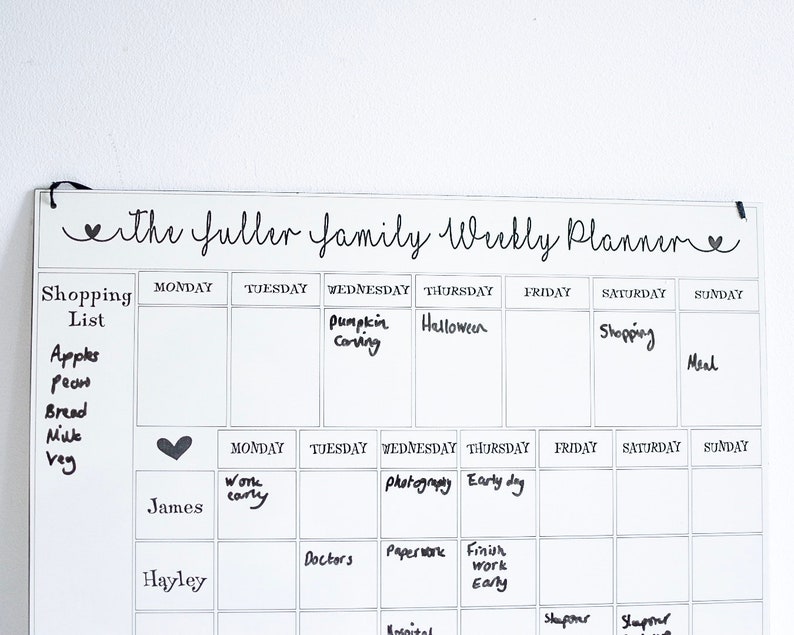 The Fuller Family Weekly Planner
Shopping
List
Apples
Pears
Bread
Milk
Veg
MONDAY TUESDAY WEDNESDAY THURSDAY FRIDAY SATURDAY SUNDAY
Pumpkin
Carving
Halloween
Shopping
Meal
MONDAY TUESDAY WEDNESDAY THURSDAY FRIDAY SATURDAY SUNDAY
James
Work
early
Photography
Early day
Hayley
Doctors
Paperwork
Finish
Work
Early
Hospital
Sleepover
Sleepover